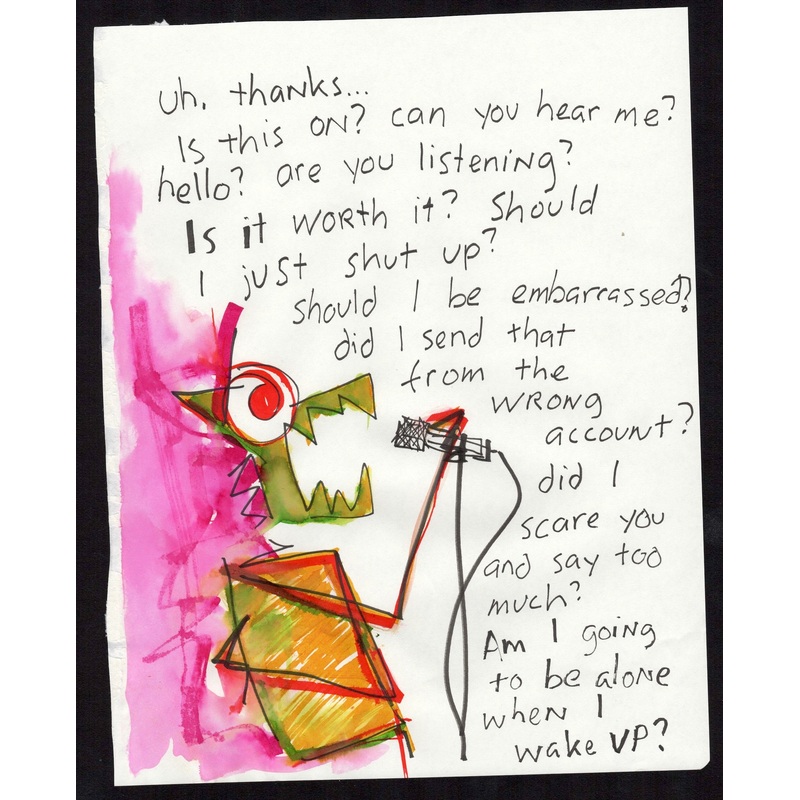 Uh, thanks...
Is this ON? can you hear me?
hello? are you listening?
Is it worth it? Should
I just shut up?
should I be embarrassed?
did I send that
from the
WRONG
account?
did I
scare you
and say too
much?
Am I going
to be alone
when I
wake UP?